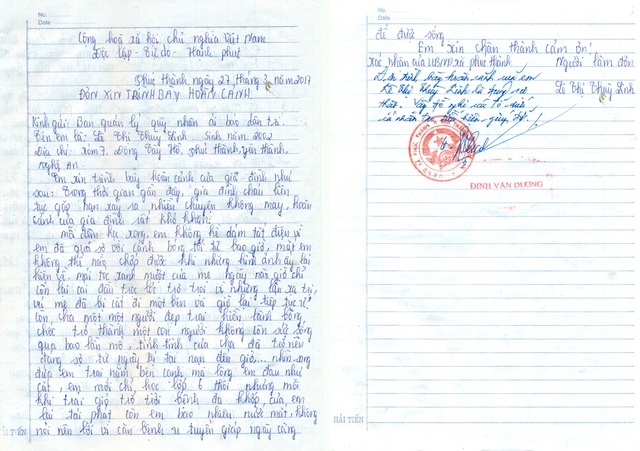 No.
Date
Cộng hoà xã hội chủ nghĩa Việt Nam
Độc lập - Tự do - Hạnh phúc
Phú Thành, ngày 27 tháng 3 năm 2017
ĐƠN XIN TRÌNH BÀY HOÀN CẢNH
Kính gửi: Ban quản lý quỹ nhân ái báo dân trí.
Tên em là: Lê Thị Thuỳ Linh sinh năm: 2002
Địa chỉ: xóm 7. Đông Tây Hồ, Phú thành, yên thành.
Nghệ An.
Em xin trình bày hoàn cảnh của gia đình như
sau: Trong thời gian gần đây, gia đình cháu liên
tục gặp nạn xảy ra nhiều chuyện không may, hoàn
cảnh của gia đình rất khó khăn:
mỗi đêm học xong, em không hề dám tắt điện vì
em đã quá sợ với cảnh bóng tối từ bao giờ, mắt em
không thể nào chớp được khi những hình ảnh ấy lại
hiện về. mái tóc xanh mượt của mẹ ngày nào giờ chỉ
còn lại cái đầu trọc lốc trơ trọi vì những lần xạ trị,
vú mẹ đã bị cắt đi một bên và giờ lại tiếp tục
còn, cha một người đẹp trai hiền lành bỗng
chốc trở thành một con người không còn sức sống
qua bao lần mổ, tính tình của cha đã trở nên
đáng sợ từ ngày bị tai nạn đến giờ... nhìn sang
đứa em trai nằm bên cạnh mà lòng em đau như
cắt, em mới chỉ học lớp 6 thôi nhưng mỗi
khi trái gió trở trời bệnh đa khớp của em
lại tái phát còn em bao nhiêu nước mắt, không
nói nên lời vì căn bệnh u tuyến giáp ngày càng
HẢI TIẾN
No.
Date
để được sống
Em xin chân thành cảm ơn!
Xác nhận của UBND xã phú thành Người làm đơn
Lê Thị Thuỳ Linh
ĐINH VĂN DƯƠNG
HẢI TIẾN